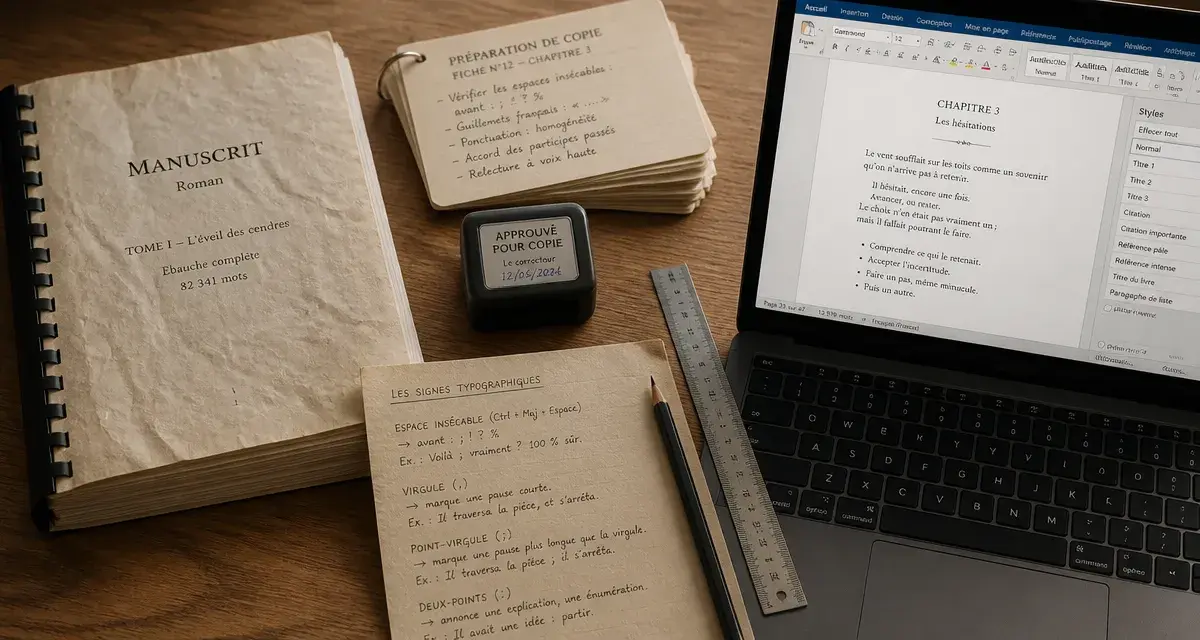 MANUSCRIT
Roman
TOME I – L'éveil des cendres
Ebauche complète
82 341 mots
PRÉPARATION DE COPIE
FICHE N°12 – CHAPITRE 3
- Vérifier les espaces insécables :
avant : ; ! ? %
- Guillemets français : « .... »
- Ponctuation : homogénéité
- Accord des participes passés
- Relecture à voix haute
APPROUVÉ
POUR COPIE
Le correcteur
12/05/2024
LES SIGNES TYPOGRAPHIQUES
ESPACE INSÉCABLE (Ctrl + Maj + Espace)
→ avant : ; ! ? %
Ex. : Voilà ; vraiment ? 100 % sûr.
VIRGULE (,)
→ marque une pause courte.
Ex. : Il traversa la pièce, et s'arrêta.
POINT-VIRGULE (;)
→ marque une pause plus longue que la virgule.
Ex. : Il traversa la pièce ; il s'arrêta.
DEUX-POINTS (:)
→ annonce une explication, une énumération.
Ex. : Il avait une idée : partir.
Accueil Insertion Dessin Conception Mise en page Références Publipostage Révision Affichage
12
Normal Titre 1 Titre 2
CHAPITRE 3
Les hésitations
Le vent soufflait sur les toits comme un souvenir
qu'on n'arrive pas à retenir.
Il hésitait, encore une fois.
Avancer, ou rester.
Le choix n'en était pas vraiment un ;
mais il fallait pourtant le faire.
• Comprendre ce qui le retenait.
• Accepter l'incertitude.
• Faire un pas, même minuscule.
• Puis un autre.
Styles
Effecer tout
Normal
Titre 1
Titre 2
Titre 3
Citation
Citation importante
Référence pâle
Référence intense
Titre du livre
Paragraphe de liste
O W E R Y U
A S D F G H J K L
Z X C V B N M
command option